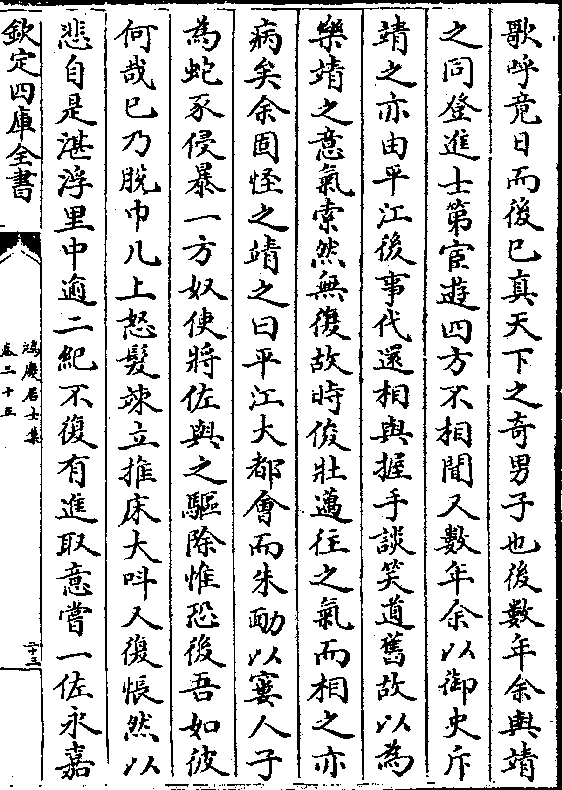 歌呼竟日而後已真天下之奇男子也後數年余與靖
之同登進士第宦遊四方不相聞又數年余以御史斥
靖之亦由平江後事代還相與握手談笑道舊故以為
樂靖之意氣索然無復故時俊壯邁往之氣而相之亦
病矣余固怪之靖之曰平江大都會而朱勔以寠人子
為蛇豕侵暴一方奴使將佐與之驅除惟恐後吾如彼
何哉已乃脫巾几上怒髮竦立推床大呌又復悵然以
悲自是湛浮里中逾二紀不復有進取意嘗一佐永嘉
欽定四庫全書
鴻慶居士集
卷二十五
二十三